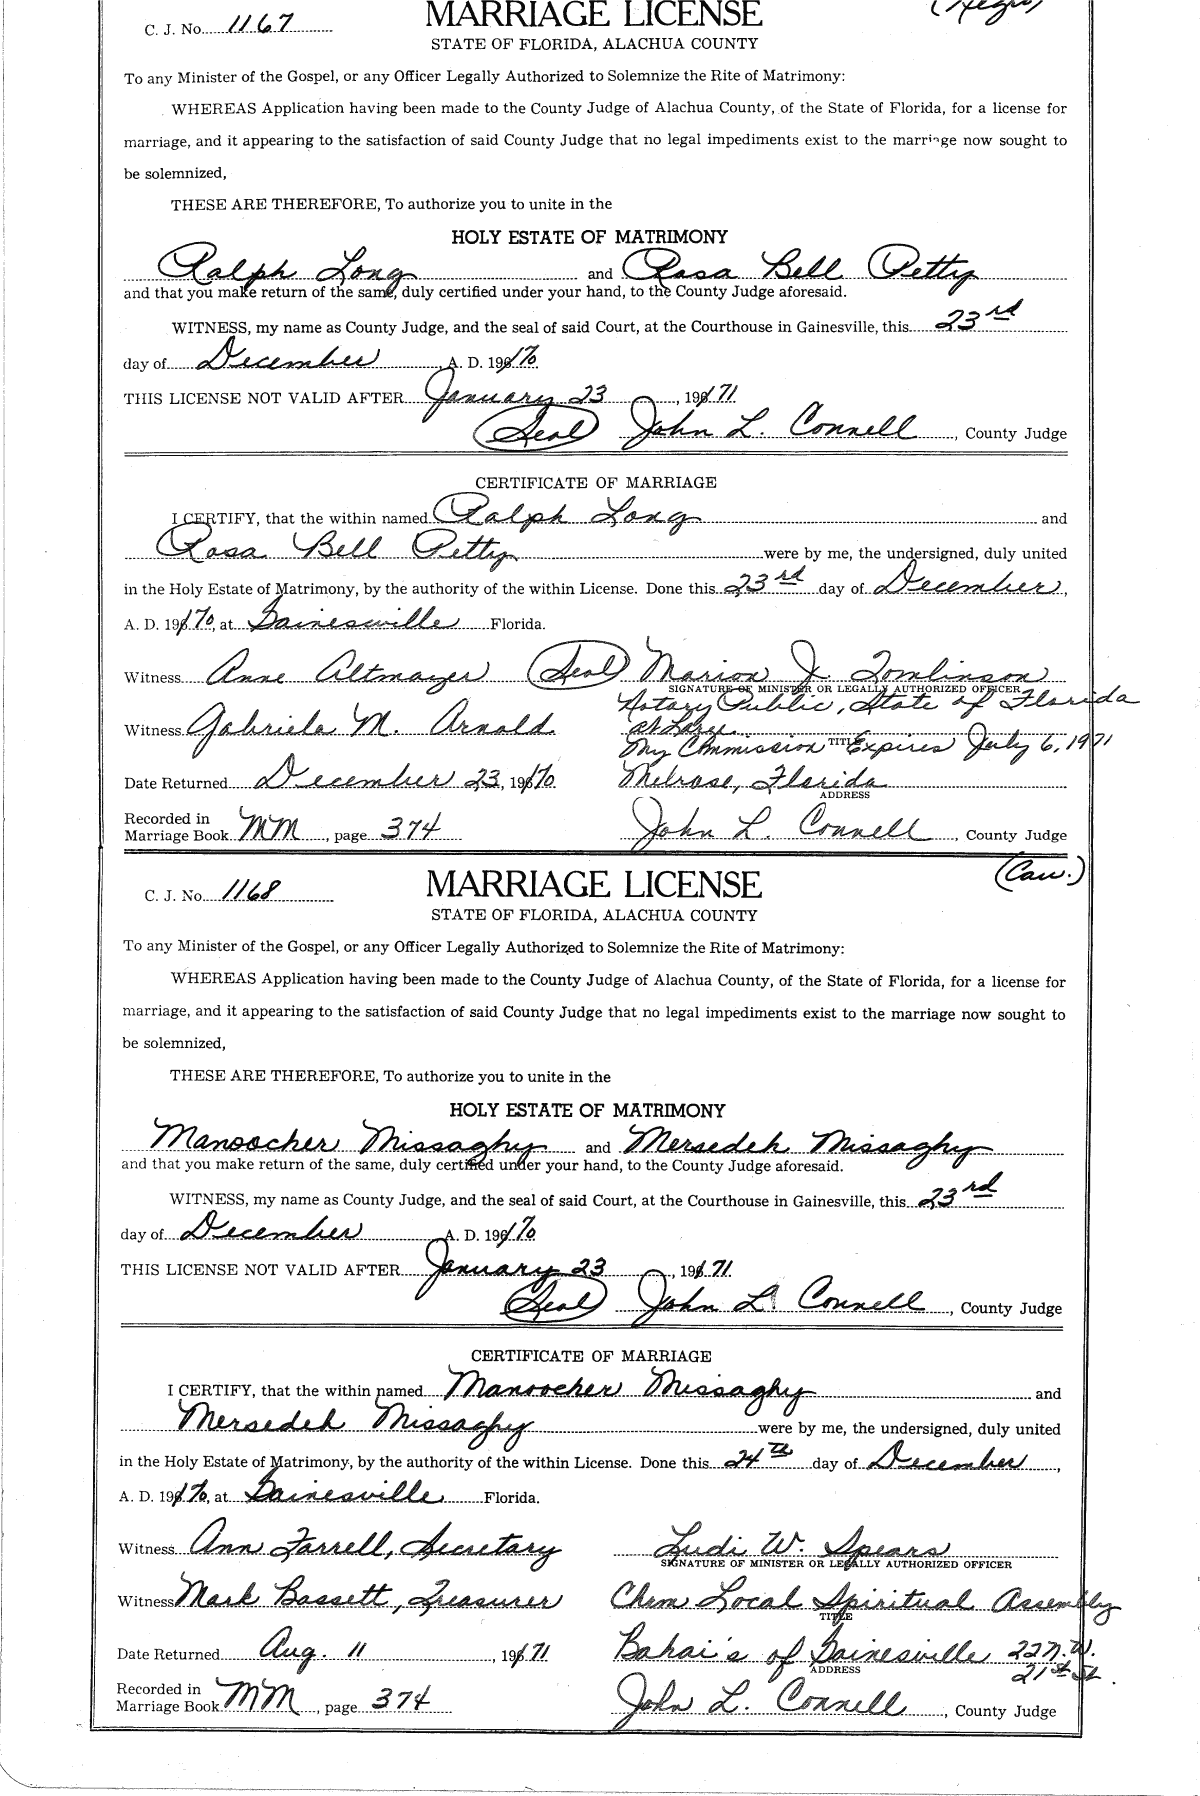 C. J. No. 1167
MARRIAGE LICENSE
(Negro)
STATE OF FLORIDA, ALACHUA COUNTY
To any Minister of the Gospel, or any Officer Legally Authorized to Solemnize the Rite of Matrimony:
WHEREAS Application having been made to the County Judge of Alachua County, of the State of Florida, for a license for
marriage, and it appearing to the satisfaction of said County Judge that no legal impediments exist to the marriage now sought to
be solemnized,
THESE ARE THEREFORE, To authorize you to unite in the
HOLY ESTATE OF MATRIMONY
Ralph Long and Rosa Bell Petty
and that you make return of the same, duly certified under your hand, to the County Judge aforesaid.
WITNESS, my name as County Judge, and the seal of said Court, at the Courthouse in Gainesville, this 23rd
day of December, A. D. 1970
THIS LICENSE NOT VALID AFTER January 23, 1971
(Seal) John L. Connell, County Judge
CERTIFICATE OF MARRIAGE
I CERTIFY, that the within named Ralph Long and
Rosa Bell Petty were by me, the undersigned, duly united
in the Holy Estate of Matrimony, by the authority of the within License. Done this 23rd day of December,
A. D. 1970, at Gainesville Florida.
Witness Anne Altmayer (Seal) Marion J. Tomlinson
SIGNATURE OF MINISTER OR LEGALLY AUTHORIZED OFFICER
Notary Public, State of Florida
Witness Gabriela M. Arnold at Large
My Commission Expires July 6, 1971
TITLE
Date Returned December 23, 1970 Melrose, Florida
ADDRESS
Recorded in
Marriage Book MM, page 374 John L. Connell, County Judge
(Cau.)
C. J. No. 1168
MARRIAGE LICENSE
STATE OF FLORIDA, ALACHUA COUNTY
To any Minister of the Gospel, or any Officer Legally Authorized to Solemnize the Rite of Matrimony:
WHEREAS Application having been made to the County Judge of Alachua County, of the State of Florida, for a license for
marriage, and it appearing to the satisfaction of said County Judge that no legal impediments exist to the marriage now sought to
be solemnized,
THESE ARE THEREFORE, To authorize you to unite in the
HOLY ESTATE OF MATRIMONY
Manoocher Missaghy and Mersedeh Missaghy
and that you make return of the same, duly certified under your hand, to the County Judge aforesaid.
WITNESS, my name as County Judge, and the seal of said Court, at the Courthouse in Gainesville, this 23rd
day of December A. D. 1970
THIS LICENSE NOT VALID AFTER January 23, 1971
(Seal) John L. Connell, County Judge
CERTIFICATE OF MARRIAGE
I CERTIFY, that the within named Manoocher Missaghy and
Mersedeh Missaghy were by me, the undersigned, duly united
in the Holy Estate of Matrimony, by the authority of the within License. Done this 24th day of December,
A. D. 1970, at Gainesville Florida.
Witness Ann Farrell, Secretary Ludi W. Spears
SIGNATURE OF MINISTER OR LEGALLY AUTHORIZED OFFICER
Witness Mark Bassett, Treasurer Chrm Local Spiritual Assembly
TITLE
Date Returned Aug. 11, 1971 Bahai's of Gainesville 22 N.W.
21st St.
ADDRESS
Recorded in
Marriage Book MM, page 374 John L. Connell, County Judge